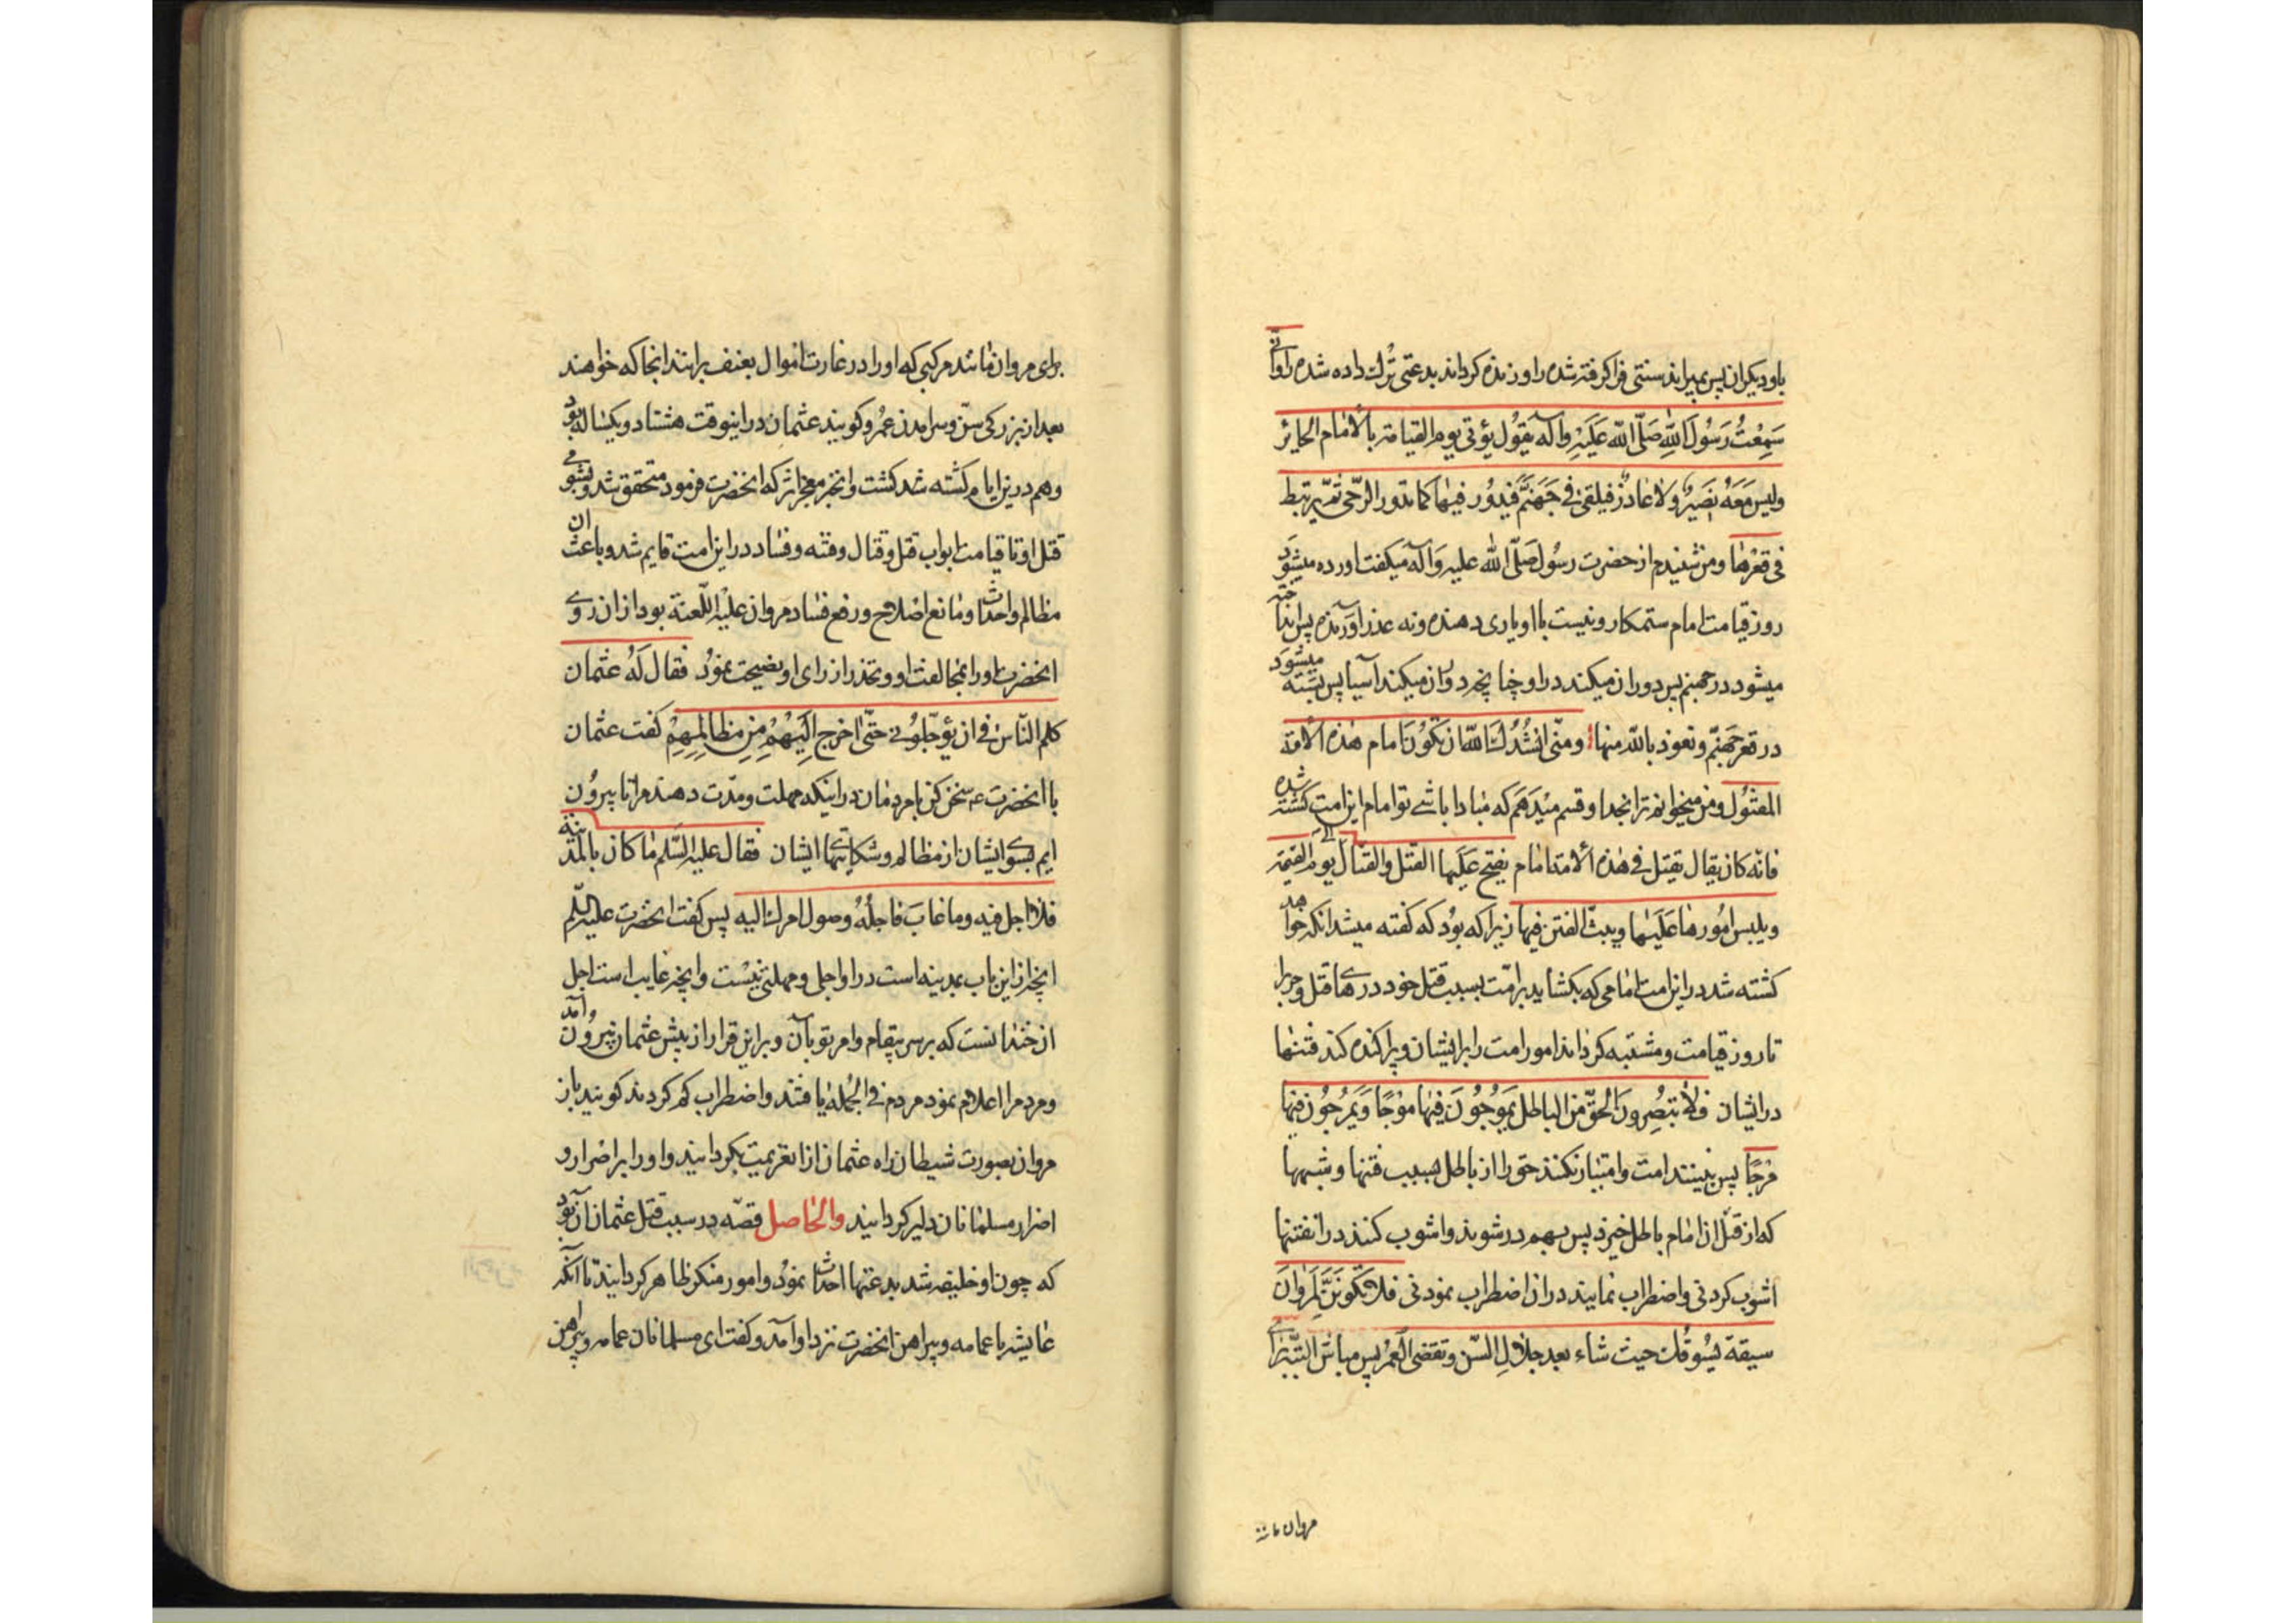 باو دیکران پس بمیراند سنتی فرا کرفته شده را و زنده کرداند بدعتی ترک داده شده را وانّی
سَمِعْتُ رَسُولَ اللّٰهِ صَلَّی اللّٰه عَلَیْهِ وآله یقول یؤتی یوم القیامة بالامام الجائر
ولیس مَعَهُ نصیرٌ ولا عاذرٌ فیلقی فی جَهَنَّم فیدُور فیها کما تدور الرّحی ثمّ یرتبط
فی قعرها ومن شنیدم از حضرت رسُول صَلَّی اللّٰه علیه وَآله میکفت اورده میشوَد
روز قیامت امام ستمکار و نیست با او یاری دهنده ونه عذر آورنده پس انداخته
میشود در جهنم پس دوران میکند در او چنانچه دوران میکند آسیا پس بسته میشوَد
در قعر جَهنّم ونعوذ باللّٰه منها وانّی انشُدُک اللّٰه ان تکُونَ امام هذه الامّة
المقتُول ومن میخوانم ترا بخدا وقسم میدَهَم که مبادا باشے تو امام این امت کشته شده
فانّه کان یقال یقتل فی هذه الامة امام یفتح عَلَیها القتل والقتال الی یوم القیمة
ویلبس امُورها عَلَیها ویبثّ الفتن فیها زیرا که بوُد که کفته میشد انکه خواهد
کشته شد در این امت امامی که بکشاید بر امّت بسبب قتل خود درهای قتل وحرب را
تا روز قیامت ومشتبه کرداند امور امت را بر ایشان و پراکنده کند فتنها
در ایشان فلا یُبْصِرونَ الحقّ من الباطل یَموُجُونَ فیها موْجًا وَیَمْرُجُون فیها
مَرْجًا پس نبینند امت وامتیاز نکنند حق را از باطل بسبب فتنها و شبهها
که از قتل ان امام باطل خیزد پس بهم در شوند واشوب کنند در ان فتنها
اشوب کردنی واضطراب نمایند در ان اضطراب نمودنی فلا تَکُونَنَّ لِمَروانَ
سیقة یَسُوقُک حیث شاء بعد جَلالِ السّن وتقضی العُمُر پس مباش البتّه برای
مروان مانند
برای مروان مانند مرکبی که او را در غارت اموال بعنف براند انجا که خواهند
بعد از بزرکی سنّ و سرامدن عُمر و کویند عثمان در اینوقت هشتاد و یکساله بود
وهم در بن ایام کشته شد کشت و انخبر معجز اثر که انحضرت فرمود متحقق شد وبشومی
قتل او تا قیامت ابواب قتل وقتال وفتنه وفساد در این امت قایم شد وباعث ان
مظالم واحداث ومانع اصلاح ورفع فساد مروان علیه اللّعنة بود از ان روے
انحضرت او را بمخالفت او وتحذر از رای او نصیحت نموُد فقال لَهُ عثمان
کلم النّاس فی ان یؤجّلونی حتّی اخرج اِلَیْهِمْ مِن مظالِمِهِمْ کفت عثمان
با انحضرت ع سخن کن با مردمان در اینکه مهلت ومدّت دهند مرا تا بیرُون
ایم بسوی ایشان از مظالم وشکایتهای ایشان فقال علیه السّلم ما کان بالمدینة
فلا اجل فیه وما غابَ فاجلُهُ وصول امرک الیه پس کفت انحضرت علیه السّلم
انچه از این باب بمدینه است در او اجلی ومهلتی نیست وانچه غایب است اجل
از چندانست که برسد پیغام وامر تو بآن و بر این قرار از پیش عثمان بیروُن آمد و
ومردم را اعلام نمود مردم فی الجُمله یافتند واضطراب کم کردند کویند باز
مروان بصورت شیطان راه عثمان از انعزیمت بکردانید و او را بر اضرار و
اضرار مسلمانان دلیر کردانید والحاصل قصّه در سبب قتل عثمان آن بود
که چون او خلیفه شد بدعتها احداث نموُد وامور منکر ظاهر کردانید تا آنکه
عایشه با عمامه و پیراهن انحضرت نزد او آمد و کفت ای مسلمانان عمامه و پیراهن